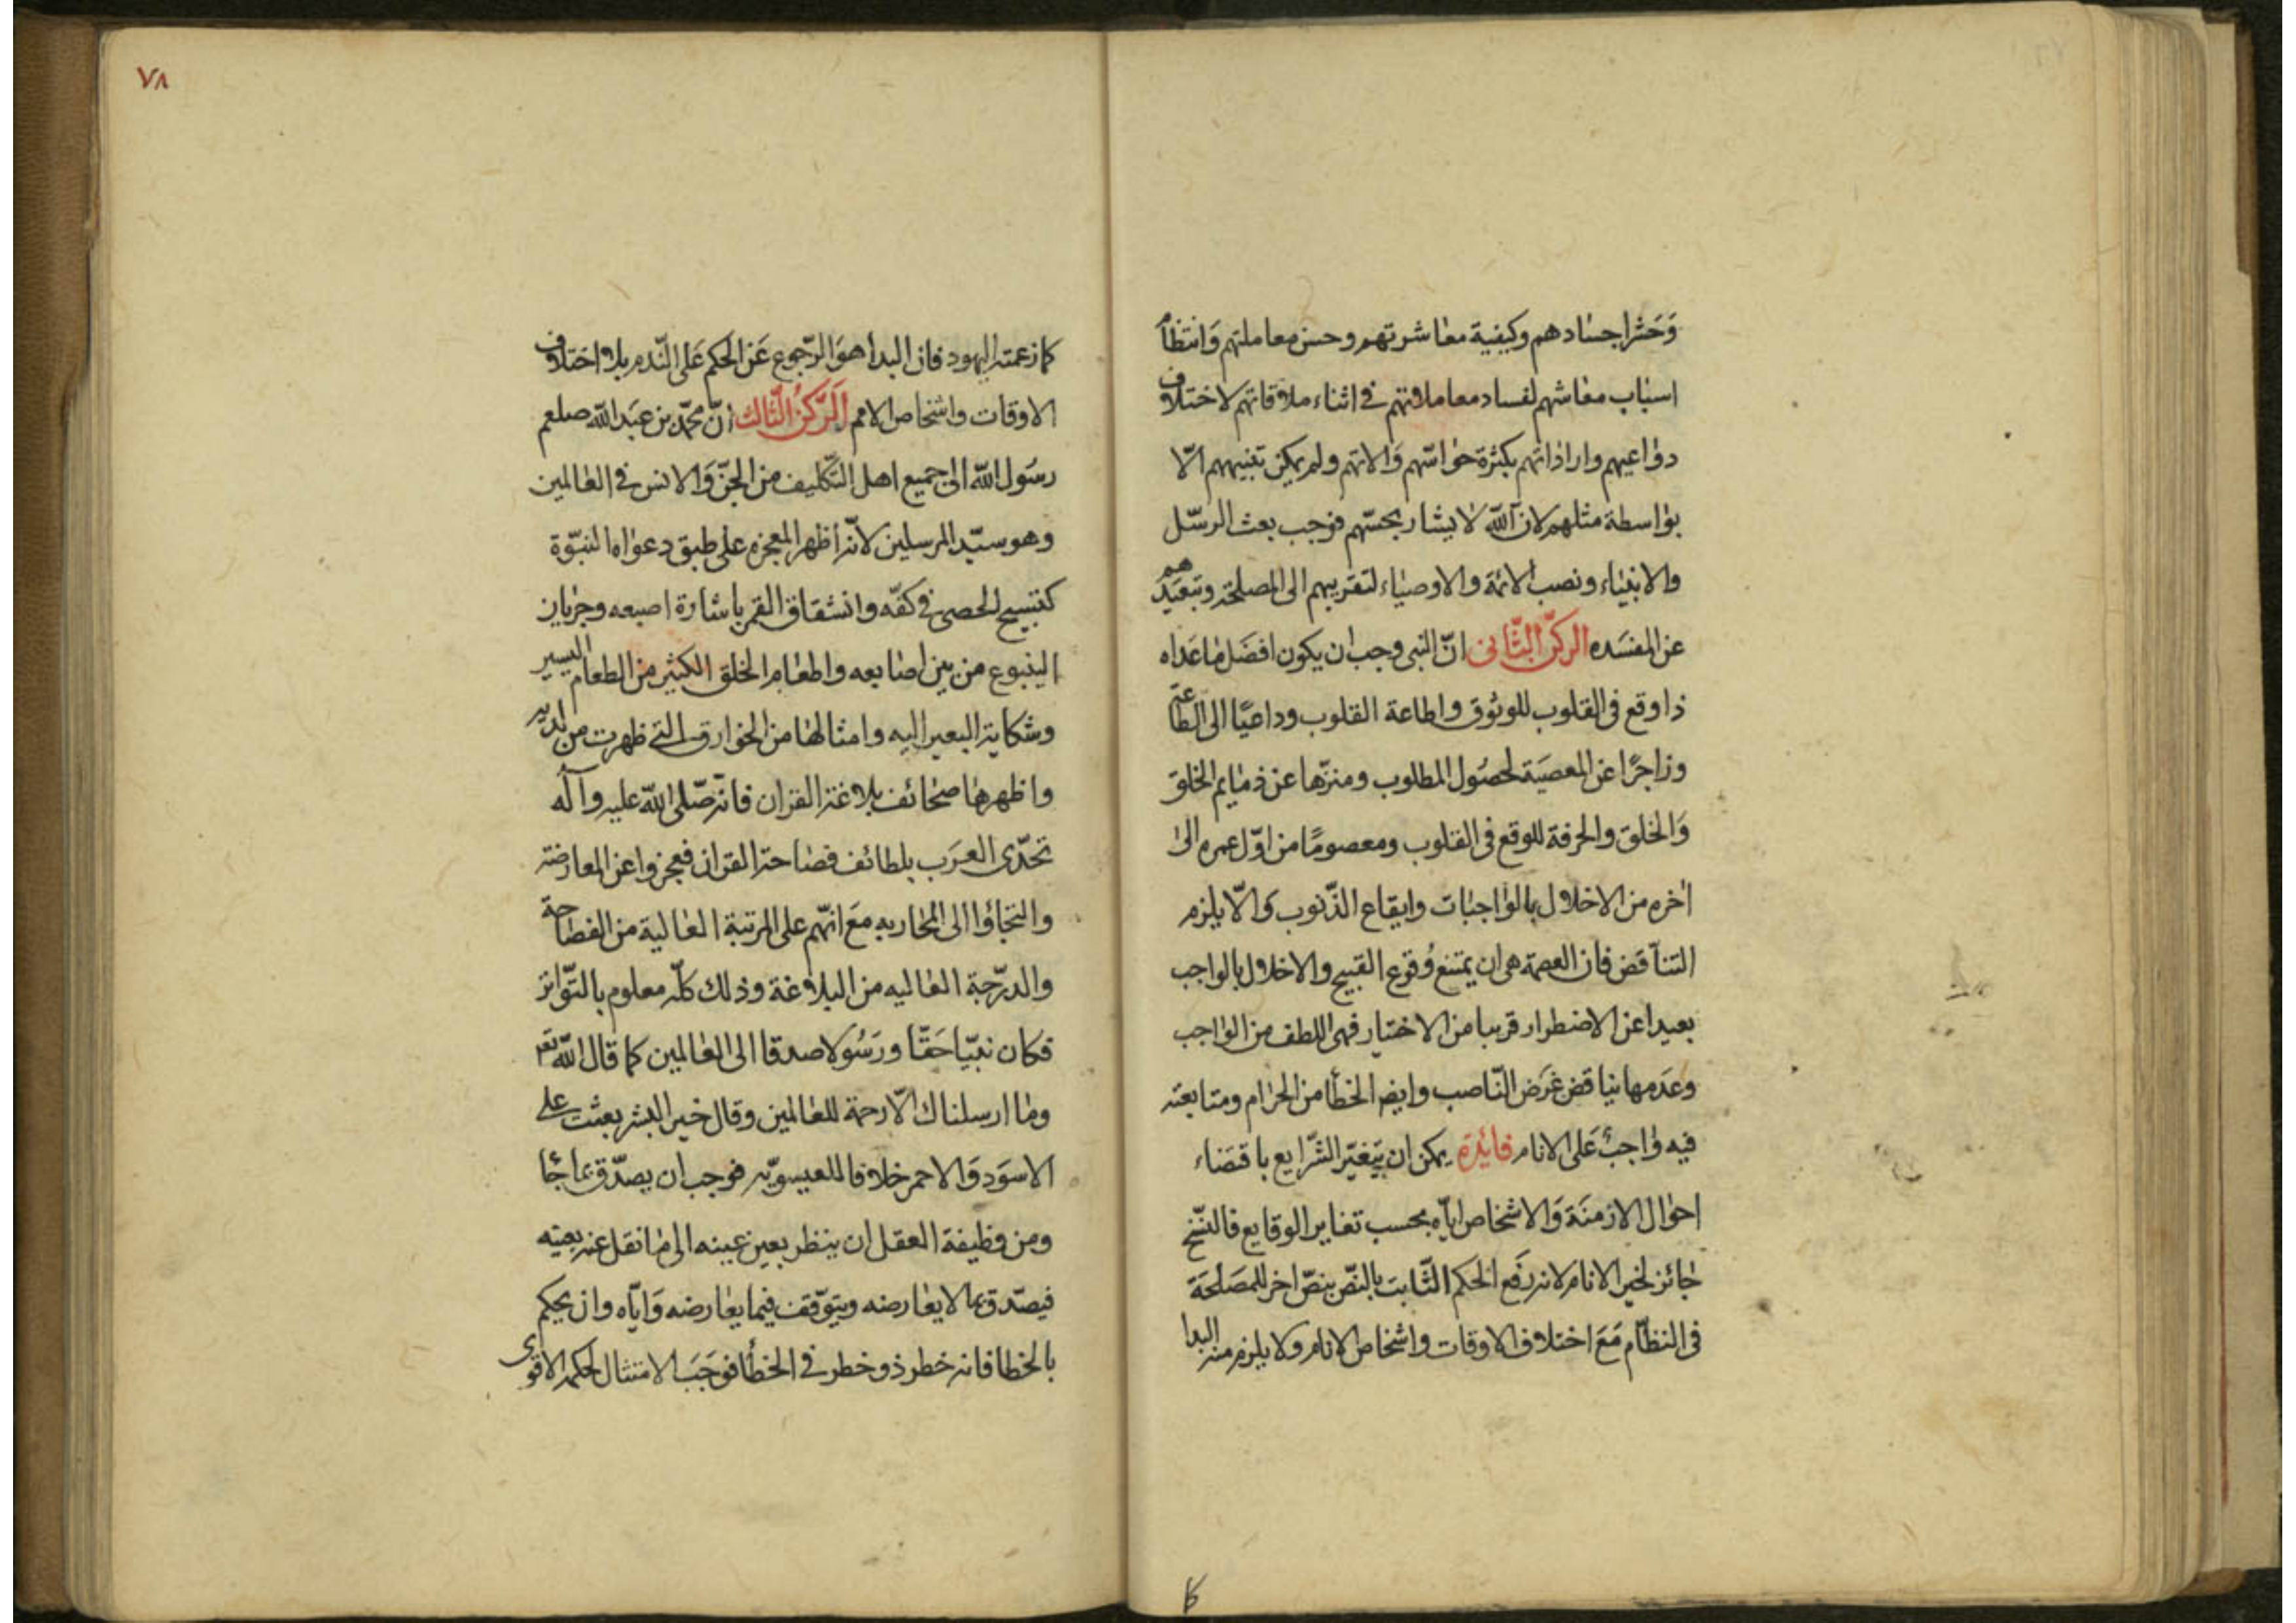 وَحَشْر اجسادهم وكيفية معاشرتهم وحسن معاملتهم وَانتظام
اسباب معاشهم لفساد معاملاتهم في اثناء ملاقاتهم لاختلاف
دواعيهم واراداتهم بكثرة حواسّهم وَالاتهم ولم يكن تنبيههم الّا
بواسطة مثلهم لان اللّه لا يشار بحسّهم فوجب بعث الرسّل
والانبياء ونصب الائمة والاوصياء لتقريبهم الى المصلحة وتبعيدهم
عن المفسَده الركن الثّانى انّ النبى وجب ان يكون افضَل ماعَداه
ذا وقع فى القلوب للوثوق واطاعة القلوب وداعيًا الى الطاعة
وزاجرًا عن المعصَية لحصُول المطلوب ومنزّها عن ذمايم الخلق
وَالخلق والحرفة للوقع فى القلوب ومعصومًا من اوّل عمره الى
اخره من الاخلال بالواجبات وايقاع الذّنوب وَالّا يلزم
التناقض فان العصمة هى ان يمتنع وُقوع القبيح والاخلال بالواجب
بعيدا عن الاضطرار قريبا من الاختيار فهى اللطف من الواجب
وعدَمها يناقض غَرَض النّاصب وايضا الخطأ من الحرام ومتابعته
فيه واجبٌ عَلى الانام فائدة يمكن ان يتغيّر الشّرايع باقتضاء
احوال الازمنَة وَالاشخاص اياه بحسب تغاير الوقايع فالنّسخ
جائز لخير الانام لانه رَفع الحكم الثّابت بالنّص بنصّ اخر للمصَلحَة
فى النظّام مَعَ اختلاف الاوقات واشخاص الانام ولا يلزم منه البدا
٧٨
كما زعمته اليهود فان البدأ هوَ الرّجوع عَن الحكم عَلى النّدم بلا اختلاف
الاوقات واشخاص الامم اَلرّكنُ الثّالث انّ محمّد بن عبَد اللّه صلعم
رسَول اللّه الى جميع اهل التّكليف من الجنّ وَالانس في العالمين
وهو سيّد المرسلين لانّه أظهر المعجزه على طبق دعواه النبّوة
كتسبيح الحصى في كفّه وانشقاق القمر باشارة اصبعه وجريان
الينبوع من بين اصابعه واطعام الخلق الكثير من الطعام اليسير
وشكاية البعير اليه وامثالها من الخوارق التي ظهرت من لديه
واظهرها صحائف بلاغة القران فانه صّلى اللّه عليه وآله
تحدّى العَرَب بلطائف فصاحة القران فعجزوا عن المعارضة
والتجاؤا الى المحاربه مَع انّهم على المرتبة العالية من الفصاحة
والدرّجة العاليه من البلاغة وذلك كلّه معلوم بالتّواتر
فكان نبيّا حَقّا ورَسُولا صدقا الى العالمين كما قال اللّه تعر
وما ارسلناك الّا رحمة للعالمين وقال خير البشر بعثت على
الاسوَد وَالاحمر خلافا للعيسويّه فوجب ان يصدّق بما جًا
ومن وظيفة العقل ان ينظر بعين عينه الى ما نقل عنه بعينه
فيصّدق بما لا يعارضه ويتوّقف فيما يعارضه وَايّاه وان يحكم
بالخطا فانه خطر ذو خطر في الخطأ فوَجَبَ الامتثال لحكمه الاقوى